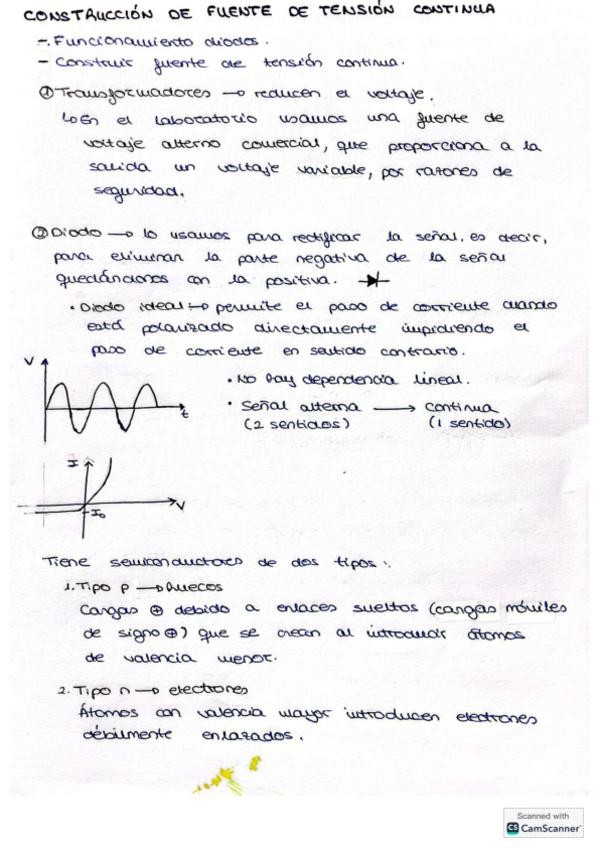 CONSTRUCCIÓN DE FUENTE DE TENSIÓN CONTINUA
-. Funcionamiento diodos.
- Construir fuente de tensión continua.
① Transformadores → reducen el voltaje.
↳ En el laboratorio usamos una fuente de
voltaje alterno comercial, que proporciona a la
salida un voltaje variable, por razones de
seguridad.
② Diodo → lo usamos para rectificar la señal, es decir,
para eliminar la parte negativa de la señal
quedándonos con la positiva.
• Diodo ideal → permite el paso de corriente cuando
está polarizado directamente impidiendo el
paso de corriente en sentido contrario.
V
t
• No hay dependencia lineal.
• Señal alterna → continua
(2 sentidos) (1 sentido)
I
V
I₀
Tiene semiconductores de dos tipos:
1. Tipo p → huecos
Cargas ⊕ debido a enlaces sueltos (cargas móviles
de signo ⊕) que se crean al introducir átomos
de valencia menor.
2. Tipo n → electrones
Átomos con valencia mayor introducen electrones
débilmente enlazados.
Scanned with
CS CamScanner